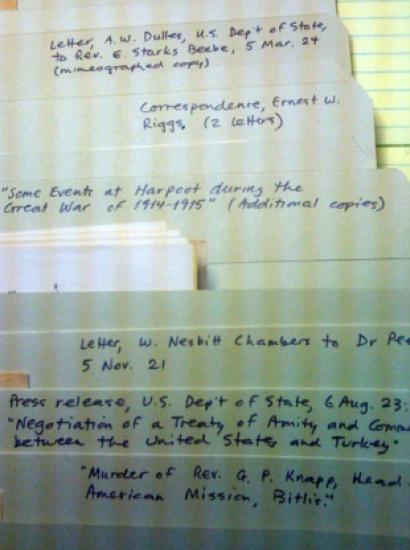 Letter, A.W. Dulles, U.S. Dep't of State,
to Rev. E. Starks Beebe, 5 Mar. 24
(mimeographed copy)
Correspondence, Ernest W.
Riggs, (2 letters)
"Some Events at Harpoot during the
Great War of 1914-1915" (Additional copies)
Letter, W. Nesbitt Chambers to Dr Pee
5 Nov. 21
Press release, U.S. Dep't of State, 6 Aug. 23:
"Negotiation of a Treaty of Amity and Comm
between the United States and Turkey"
"Murder of Rev. G. P. Knapp, Head
American Mission, Bitlis."